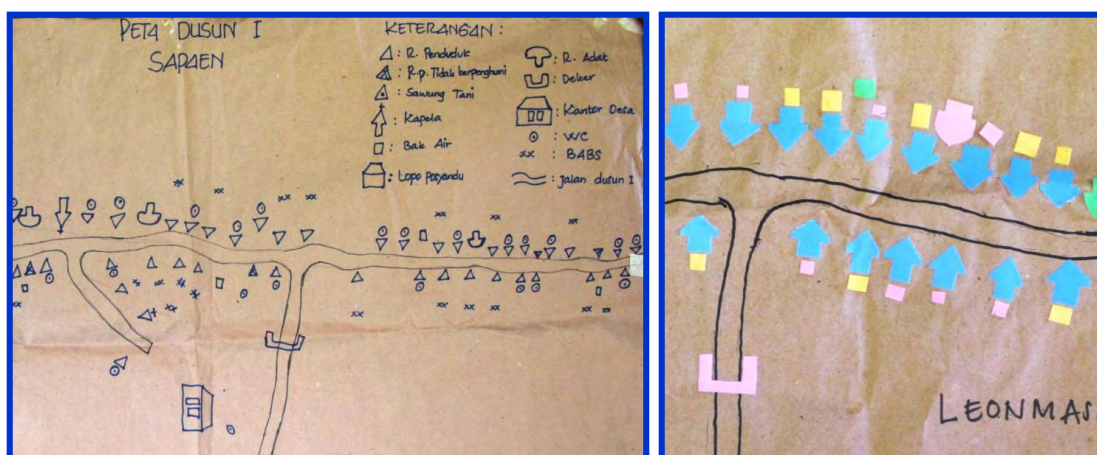 PETA DUSUN I
SAPAEN
KETERANGAN :
: R. Penduduk
: R.p. Tidak berpenghuni
: Sawung Tani
: Kapela
: Bak Air
: Lopo Posyandu
: R. Adat
: Deker
: Kantor Desa
: WC
xx : BABS
: Jalan dusun I
LEONMAS